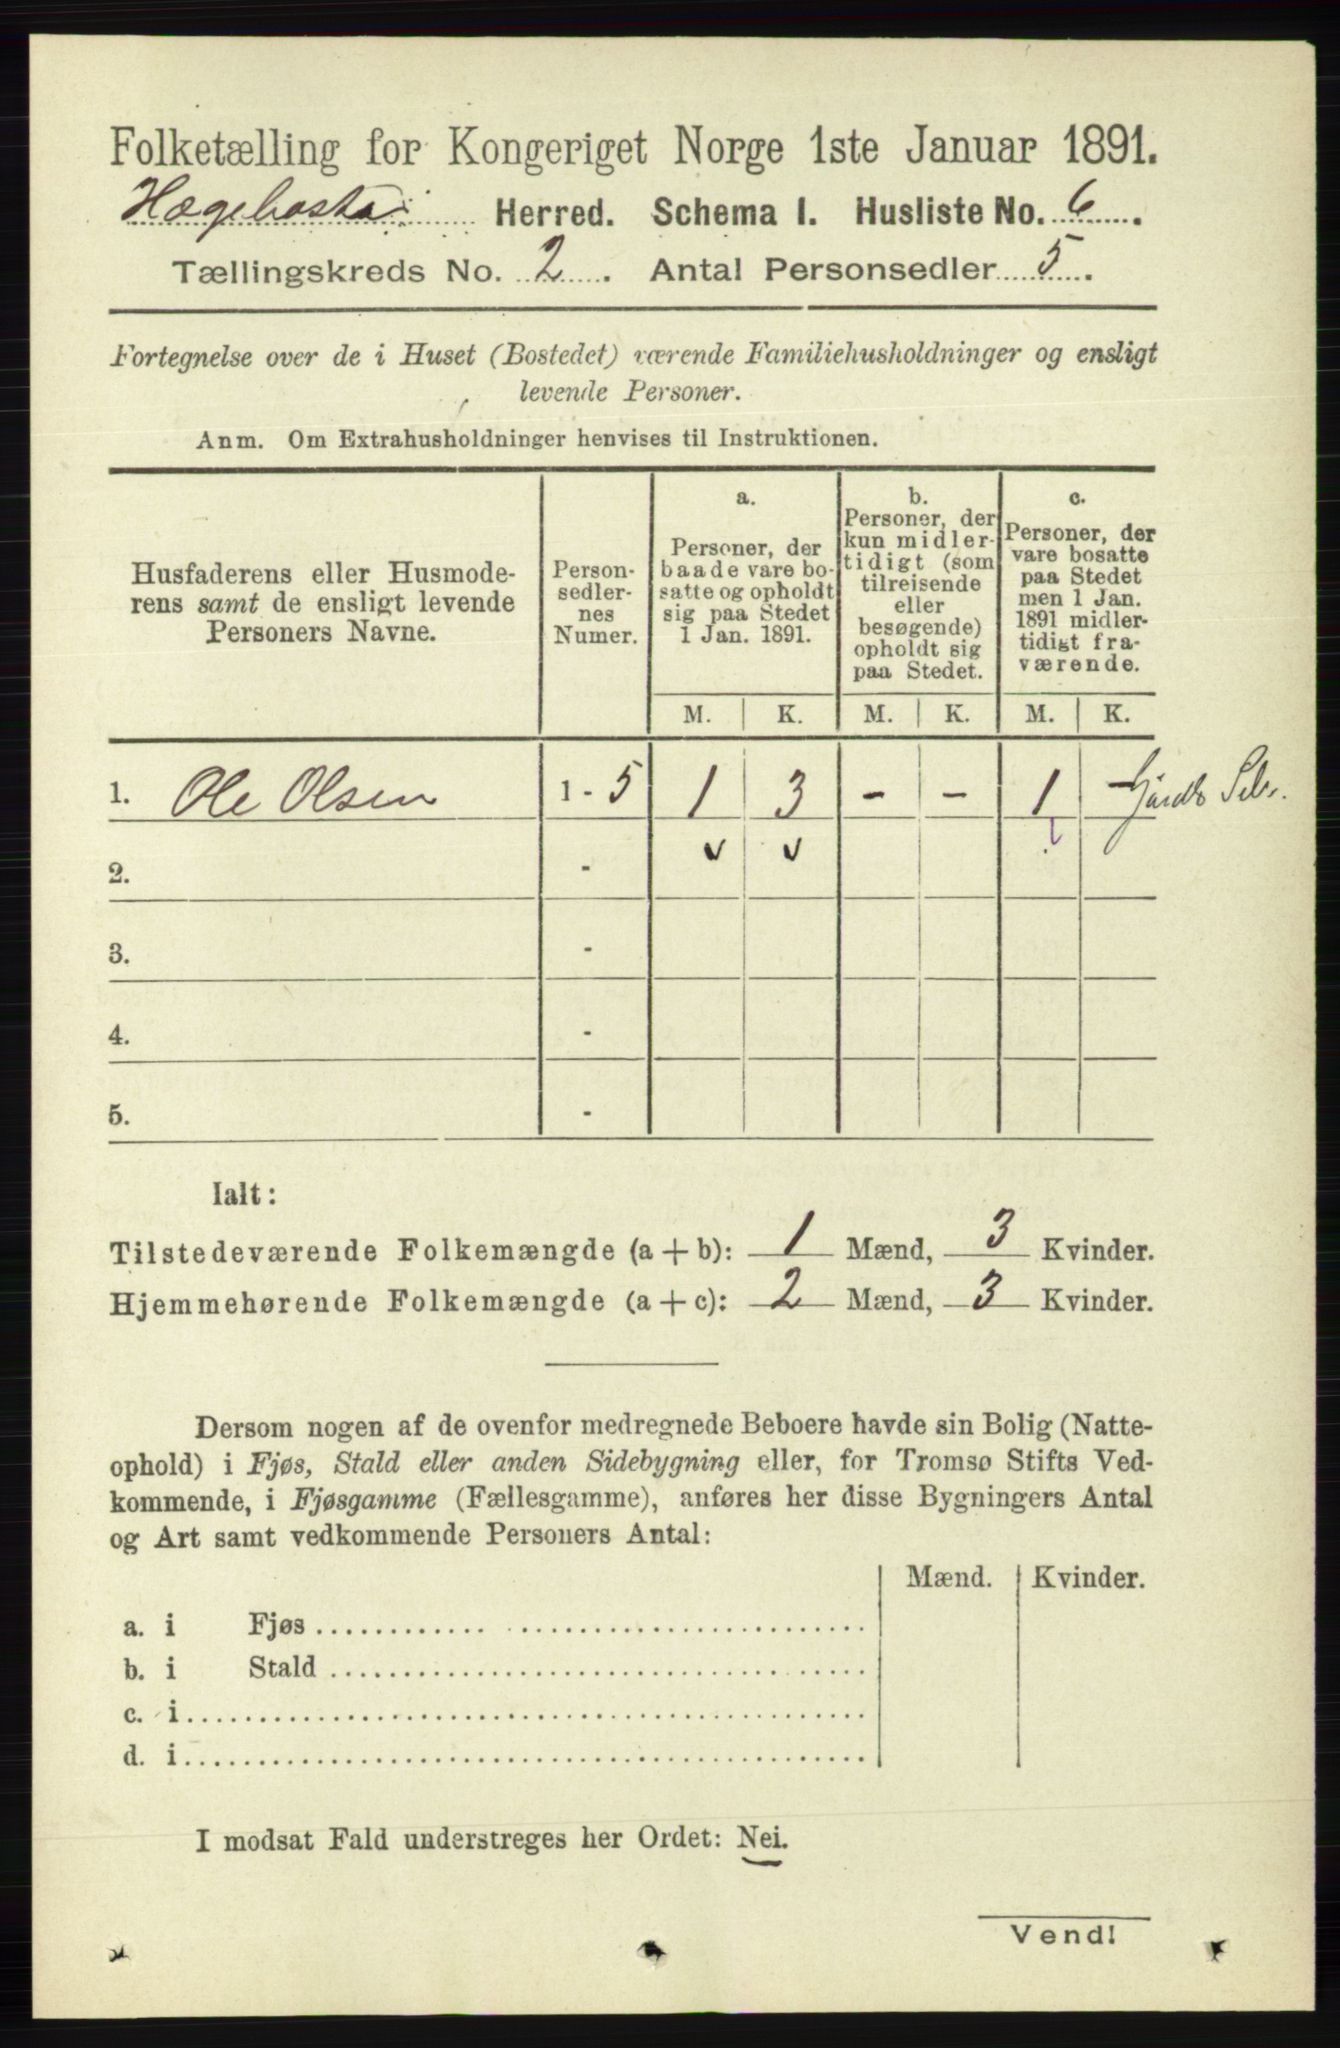 Folketælling for Kongeriget Norge 1ste Januar 1891.
Hægebosta Herred. Schema I. Husliste No. 6.
Tællingskreds No. 2. Antal Personsedler 5.
Fortegnelse over de i Huset (Bostedet) værende Familiehusholdninger og ensligt
levende Personer.
Anm. Om Extrahusholdninger henvises til Instruktionen.
Husfaderens eller Husmode-
rens samt de ensligt levende
Personers Navne.
Person-
sedler-
nes
Numer.
a.
Personer, der
baade vare bo-
satte og opholdt
sig paa Stedet
1 Jan. 1891.
b.
Personer, der
kun midler-
tidigt (som
tilreisende
eller
besøgende)
opholdt sig
paa Stedet.
c.
Personer, der
vare bosatte
paa Stedet
men 1 Jan.
1891 midler-
tidigt fra-
værende.
M. K. M. K. M. K.
1. Ole Olsen 1 - 5 1 3 - - 1 -
2. - v v
3. -
4. -
5. -
Ialt:
Tilstedeværende Folkemængde (a + b): 1 Mænd, 3 Kvinder.
Hjemmehørende Folkemængde (a + c): 2 Mænd, 3 Kvinder.
Dersom nogen af de ovenfor medregnede Beboere havde sin Bolig (Natte-
ophold) i Fjøs, Stald eller anden Sidebygning eller, for Tromsø Stifts Ved-
kommende, i Fjøsgamme (Fællesgamme), anføres her disse Bygningers Antal
og Art samt vedkommende Personers Antal:
Mænd. Kvinder.
a. i Fjøs
b. i Stald
c. i
d. i
I modsat Fald understreges her Ordet: Nei.
Vend!